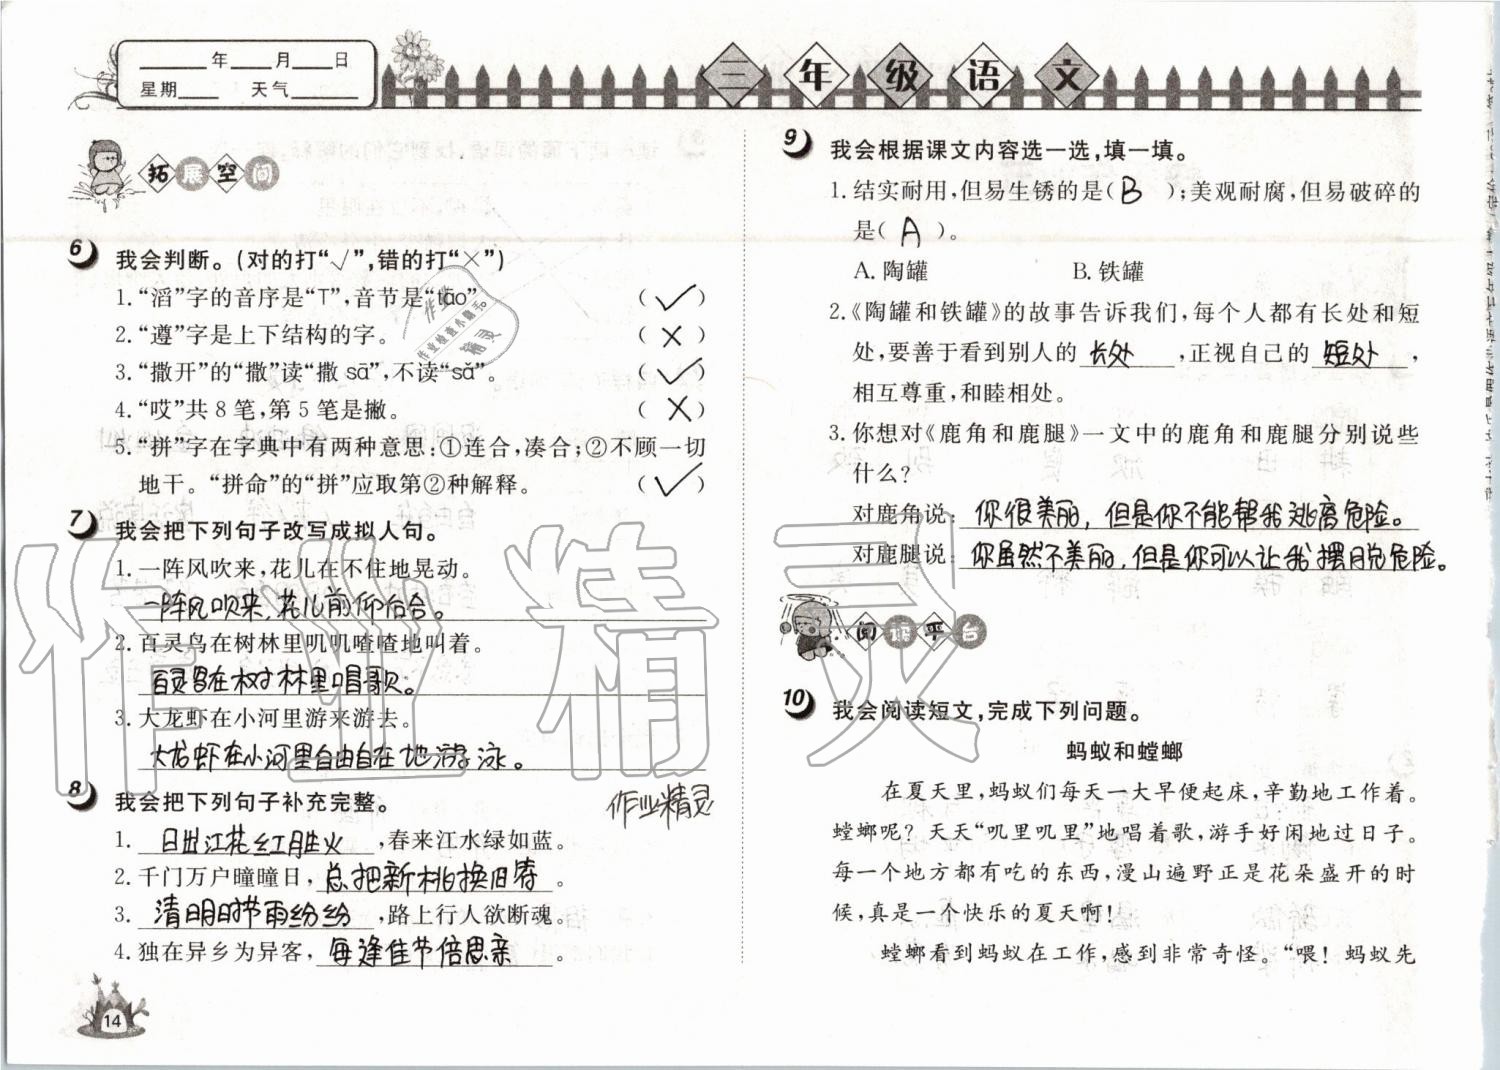 ______年____月____日
星期____ 天气_______
三年级语文
拓展空间
6 我会判断。(对的打“√”,错的打“×”)
1.“滔”字的音序是“T”,音节是“tāo”。 (√)
2.“遵”字是上下结构的字。 (×)
3.“撒开”的“撒”读“撒 sā”,不读“sǎ”。 (√)
4.“哎”共 8 笔,第 5 笔是撇。 (×)
5.“拼”字在字典中有两种意思:①连合,凑合;②不顾一切
地干。“拼命”的“拼”应取第②种解释。 (√)
7 我会把下列句子改写成拟人句。
1.一阵风吹来,花儿在不住地晃动。
一阵风吹来,花儿前仰后合。
2.百灵鸟在树林里叽叽喳喳地叫着。
百灵鸟在树林里唱歌。
3.大龙虾在小河里游来游去。
大龙虾在小河里自由自在地游泳。
8 我会把下列句子补充完整。
作业精灵
1. 日出江花红胜火,春来江水绿如蓝。
2.千门万户曈曈日,总把新桃换旧春。
3. 清明时节雨纷纷,路上行人欲断魂。
4.独在异乡为异客,每逢佳节倍思亲。
14
9 我会根据课文内容选一选,填一填。
1.结实耐用,但易生锈的是( B );美观耐腐,但易破碎的
是( A )。
A.陶罐 B.铁罐
2.《陶罐和铁罐》的故事告诉我们,每个人都有长处和短
处,要善于看到别人的 长处 ,正视自己的 短处 ,
相互尊重,和睦相处。
3.你想对《鹿角和鹿腿》一文中的鹿角和鹿腿分别说些
什么?
对鹿角说:你很美丽,但是你不能帮我逃离危险。
对鹿腿说:你虽然不美丽,但是你可以让我摆脱危险。
阅读平台
10 我会阅读短文,完成下列问题。
蚂蚁和螳螂
在夏天里,蚂蚁们每天一大早便起床,辛勤地工作着。
螳螂呢?天天“叽里叽里”地唱着歌,游手好闲地过日子。
每一个地方都有吃的东西,漫山遍野正是花朵盛开的时
候,真是一个快乐的夏天啊!
螳螂看到蚂蚁在工作,感到非常奇怪。“喂!蚂蚁先
作业精灵